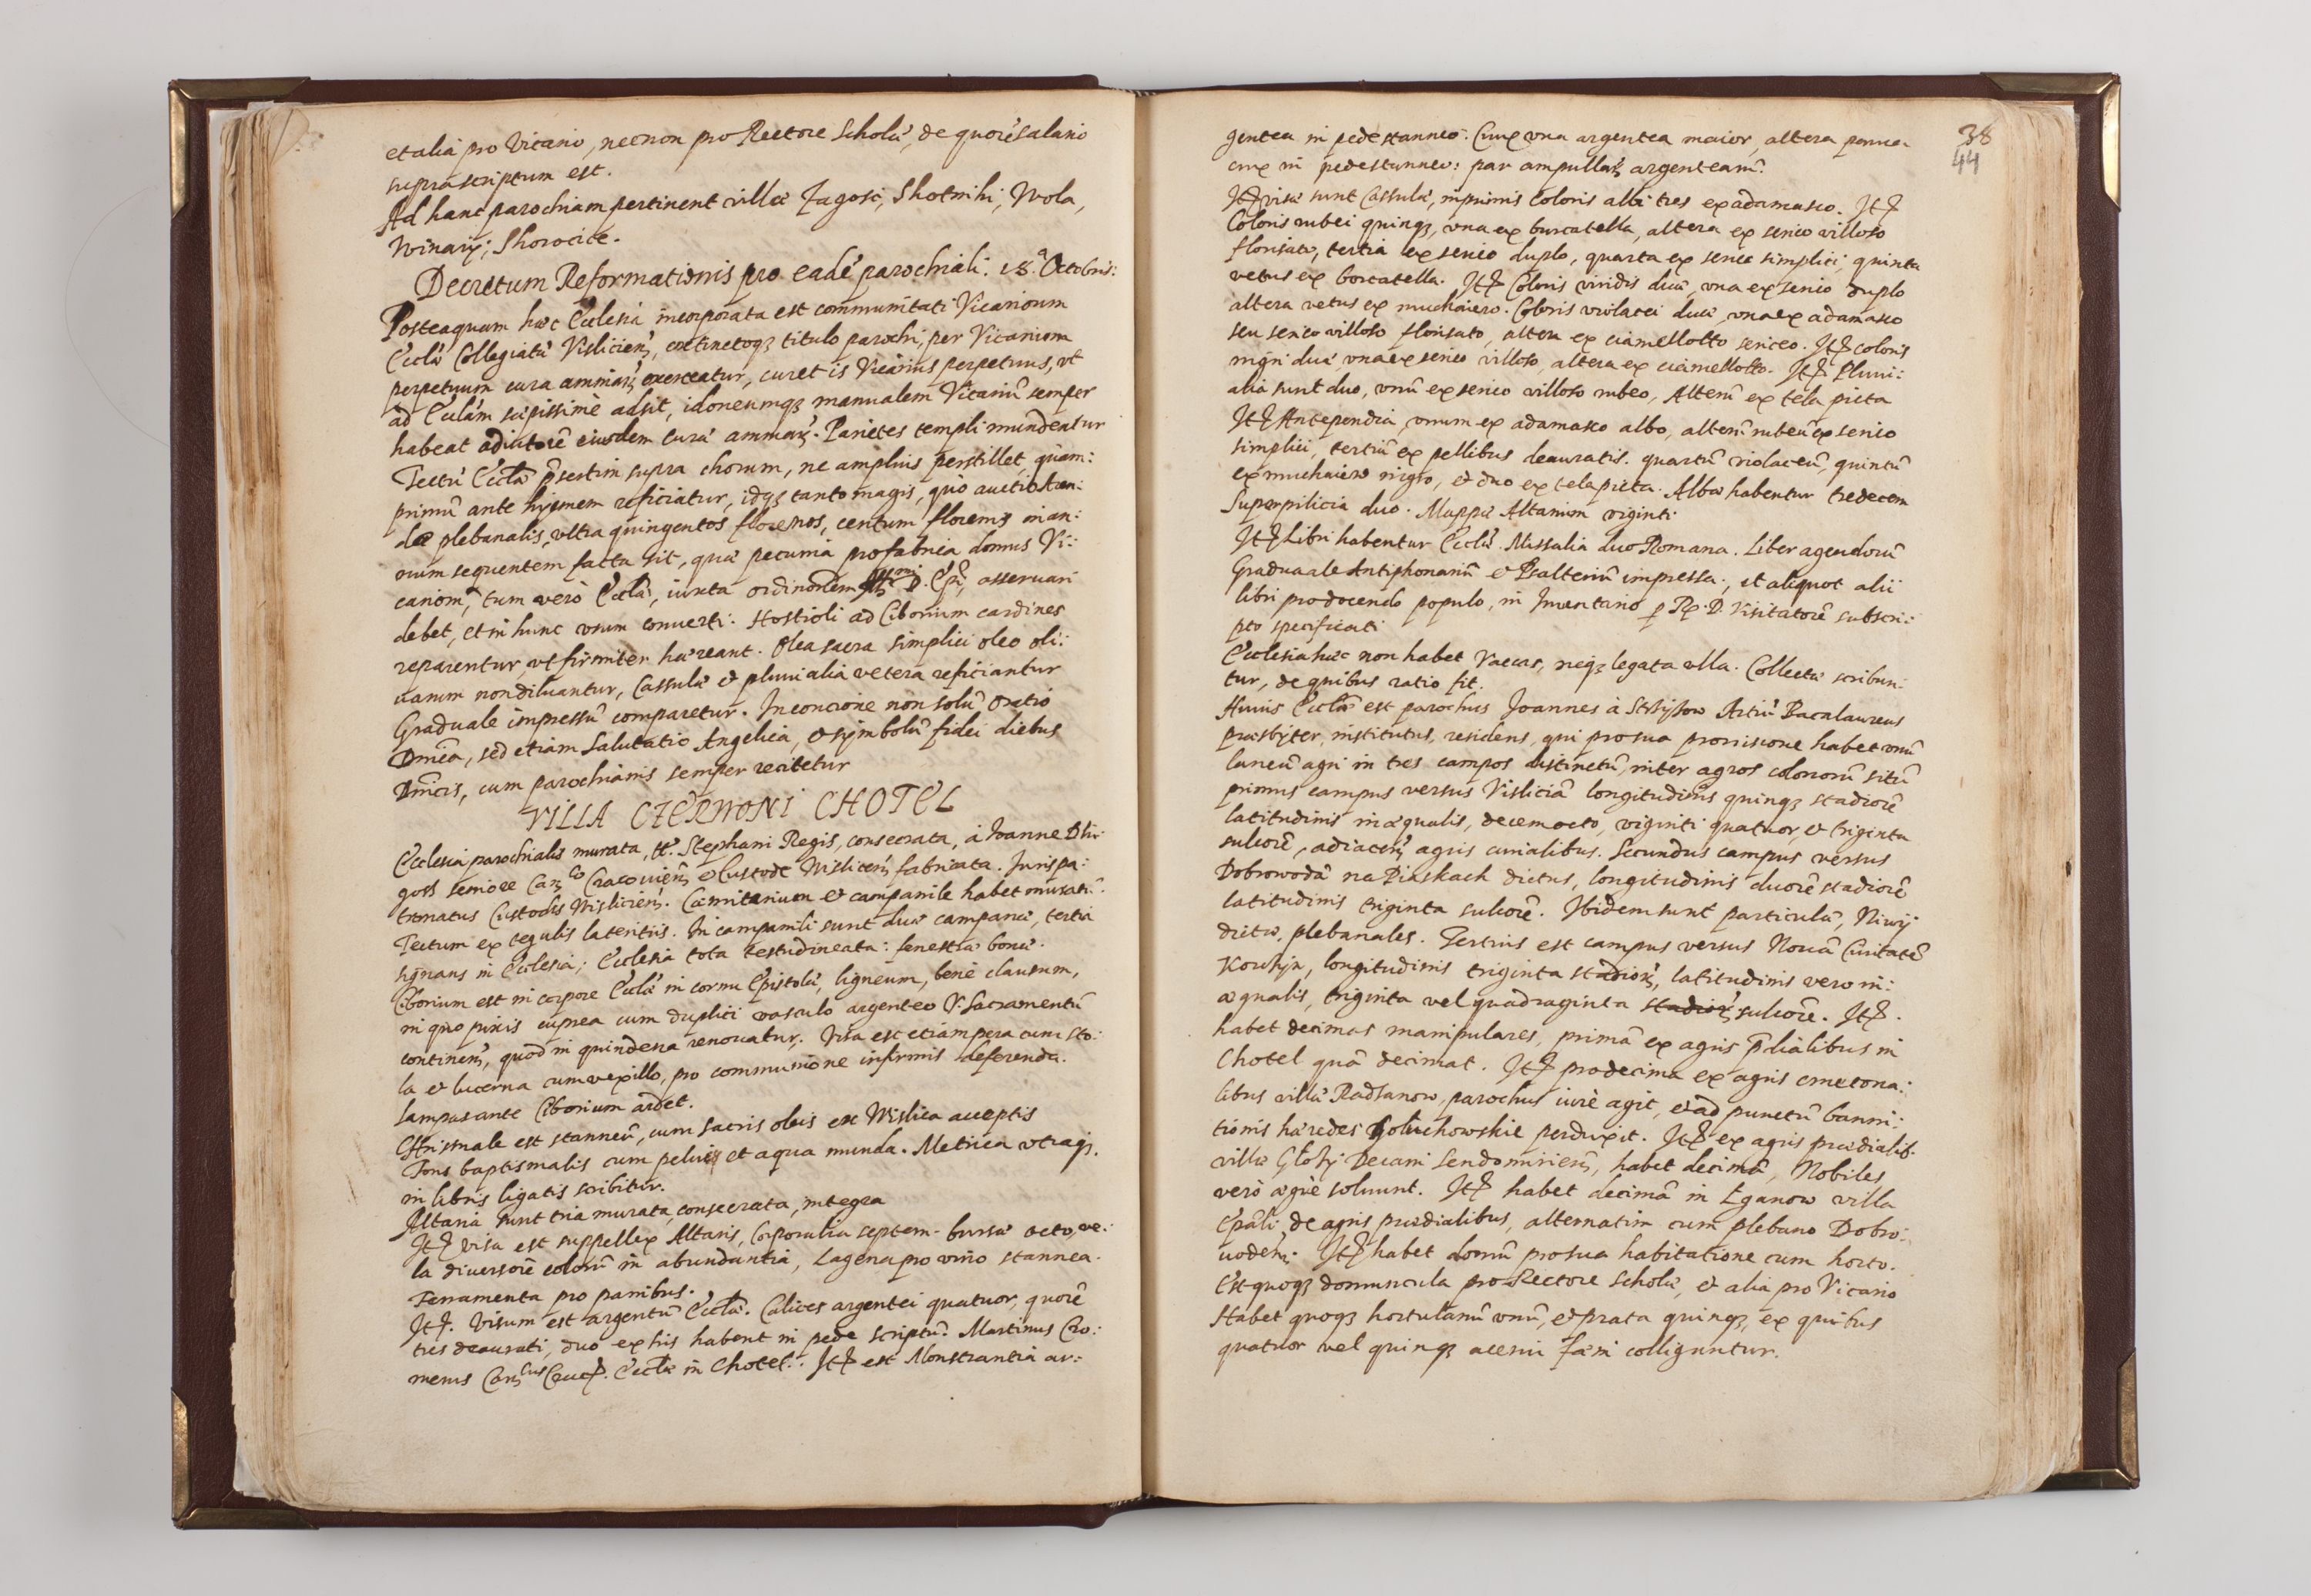 et alia pro Vicario, necnon pro Rectore Scholæ, de quorū salario
suprascriptum est.
Ad hanc parochiam pertinent villæ Zagosc, Skotniki, Wola,
Winiary, Skorocice.
Decretum Reformationis pro eadē parochiali. 18.a Octobris:
Posteaquam hæc Ecclesia incorporata est communitati Vicariorum
Ecclæ Collegiatæ Vislicien̄, cumq titulo parochi, per Vicarium
perpetuum cura animar̄ exerceatur, curet is Vicarius perpetuus, vt
ad Ecclām sæpissimè adsit, idoneumq; manualem Vicariū semper
habeat adiutorē eiusdem curæ animar̄. Parietes templi mundentur
Tectū Ecclæ p̄sertim supra chorum, ne amplius perstillet, quàm:
primū ante hyemem reficiatur, idq; tanto magis, quò auctio Aren:
dæ plebanalis, vltra quingentos florenos, centum florenis in an:
num sequentem facta sit, quæ pecunia pro fabrica domus Vi:
cariorū, tum verò Ecclæ, iuxta ordinōnem D. Ep̄i, asseruari
debet, et in hunc vsum conuerti. Hostioli ad Ciborium cardines
reparentur, vt firmiter hæreant. Olea sacra simplici oleo oli:
uarum non diluantur, Cassulæ et pluuialia vetera reficiantur
Graduale impressū comparetur. In concione non solū Oratio
Dn̄ica, sed etiam Salutatio Angelica, et symbolū fidei diebus
Dn̄icis, cum parochianis semper recitetur
VILLA CZERWONI CHOTEL
Ecclesia parochialis murata, tt. Stephani Regis, consecrata, à Joanne Dlu:
goss seniore Can̄co Cracouien̄ et Custode Wislicien̄ fabricata. Juris pa:
tronatus Custodis Wislicien̄. Cæmiterium et campanile habet muratū.
Tectum ex tegulis lateritiis. In campanili sunt duæ campanæ, tertia
signans in Ecclesia; Ecclesia tota testudineata: fenestræ bonæ.
Ciborium est in corpore Ecclæ in cornu Epistolæ, ligneum, benè clausum,
in quo pixis cuprea cum duplici vasculo argenteo V. Sacramentū
continen̄, quod in quindena renouatur. Visa est etiam pera cum sto:
la et lucerna cum vexillo, pro communione infirmis deferenda.
Lampas ante Ciborium ardet.
Chrismale est stanneū, cum sacris oleis ex Wislica acceptis
Fons baptismalis cum pelui et aqua munda. Metrica vtraq;
in libris ligatis scribitur.
Altaria sunt tria murata, consecrata, integra
Itē visa est suppellex Altaris, Corporalia septem, bursæ octo, ve:
la diuersorū colorū in abundantia, Lagena pro vino stannea.
Ferramenta pro panibus.
Itē. Visum est argentū Ecclæ. Calices argentei quatuor, quorū
tres deaurati, duo ex his habent in pede scriptū. Martinus Cro:
merus Can̄cus Crac. Ecclæ in Chotel. Itē est Monstrantia ar:
38
44
gentea in pede stanneo. Crux vna argentea maior, altera parua
crux in pede stanneo: par ampullar̄ argentearū.
Itē visæ sunt Cassulæ, inprimis Coloris albi tres ex adamasco. Itē
Coloris rubei quinq;, vna ex burcatella, altera ex serico villoso
florisato, tertia ex serico duplo, quarta ex serico simplici, quinta
vetus ex borcatella. Itē Coloris viridis duæ, vna ex serico duplo
altera vetus ex muchaiero. Coloris violacei duæ, vna ex adamasco
seu serico villoso florisato, altera ex ciamellotto sericeo. Itē coloris
nigri duæ, vna ex serico villoso, altera ex ciamellotto. Itē Pluui:
alia sunt duo, vnū ex serico villoso rubeo, Alterū ex tela picta
Itē Antependia, vnum ex adamasco albo, alterū rubeū ex serico
simplici, tertiū ex pellibus deauratis. quartū violaceū, quintū
ex muchaiero nigro, et duo ex tela picta. Albæ habentur tredecem
Superpilicia duo. Mappæ Altarium viginti
Itē Libri habentur Ecclæ. Missalia duo Romana. Liber agendorū
Graduale Antiphonariū et Psalteriū impressa, et aliquot alii
libri pro docendo populo, in Inuentario p R. D. Visitatorē subscri:
pto specificati
Ecclesia hæc non habet vaccas, neq; legata vlla. Collectæ scribun:
tur, de quibus ratio fit.
Huius Ecclæ est parochus Joannes à Strzyzow Artiū Bacalaureus
præsbyter, institutus, residens, qui pro sua prouisione habet vnū
laneū agri in tres campos distinctū, inter agros colonorū sitū
primus campus versus Visliciā longitudinis quinq; stadiorū
latitudinis inæqualis, decemocto, viginti quatuor, et triginta
sulcorū, adiacen̄ agris curialibus. Secundus campus versus
Dobrowodā na Piaskach dictus, longitudinis duorū stadiorū
latitudinis triginta sulcorū. Ibidem sunt particulæ, Niwy
dictæ, plebanales. Tertius est campus versus Nouā Ciuitatē
Korchyn, longitudinis triginta stadior̄, latitudinis vero in:
æqualis, triginta vel quadraginta stadior̄ sulcorū. Itē.
habet decimas manipulares, primā ex agris p̄dialibus in
Chotel quā decimat. Itē pro decima ex agris cmetona:
libus villæ Radzanow, parochus iurè agit, et ad punctū banni:
tionis hæredes Goluchowskie perduxit. Itē ex agris prædialib.
villæ Gluzy Decani Sendomirien̄, habet decimā, Nobiles
verò ægrè soluunt. Itē habet decimā in Łganow villa
Ep̄ali de agris prædialibus, alternatim cum plebano Dobro:
uoden̄. Itē habet domū pro sua habitatione cum horto.
Est quoq; domuncula pro Rectore Scholæ, et alia pro Vicario
Habet quoq; hortulanū vnū, et prata quinq;, ex quibus
quatuor vel quinq; acerui fæni colliguntur.